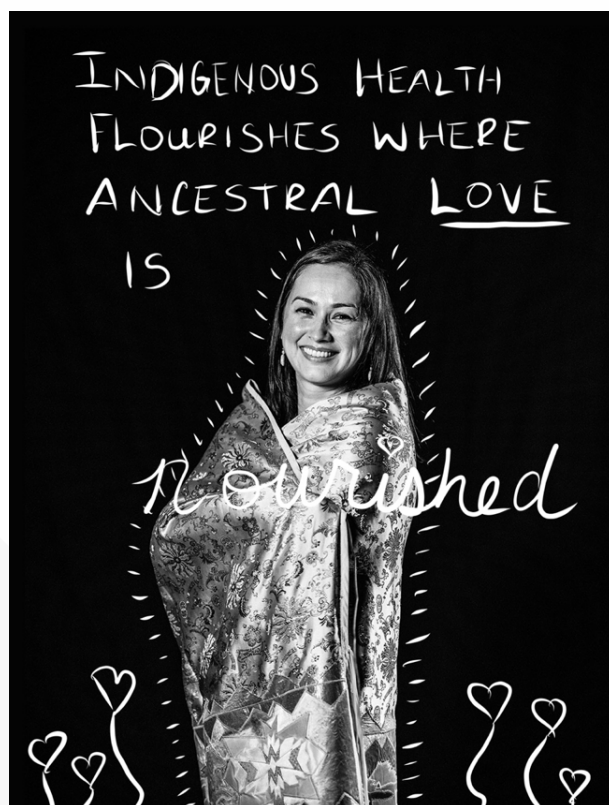 INDIGENOUS HEALTH
FLOURISHES WHERE
ANCESTRAL LOVE
IS
nourished